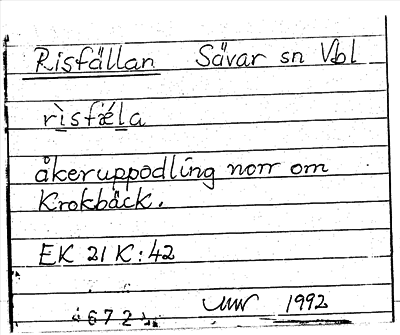 Risfällan Sävar sn Vbl
rìsfǽla
åkeruppodling norr om
Krokbäck.
EK 21 K:42
4672
1992